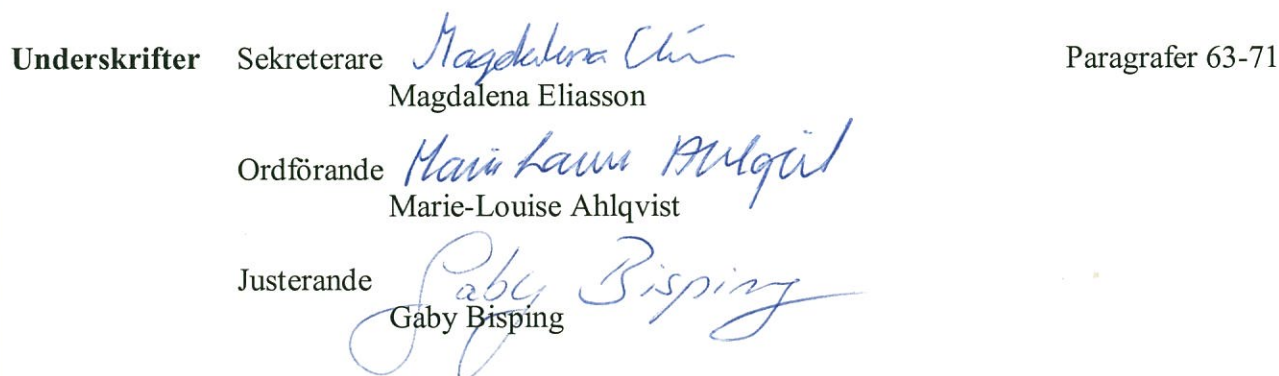 Underskrifter Sekreterare Magdalena Paragrafer 63-71
Magdalena Eliasson
Ordförande
Marie-Louise Ahlqvist
Justerande Gaby Bisping
Gaby Bisping